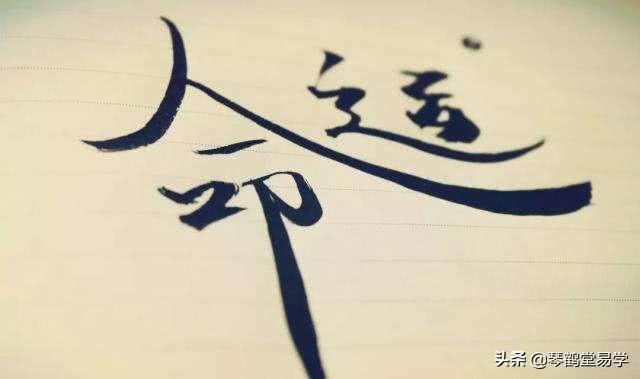 命运
头条 @琴鹤堂易学